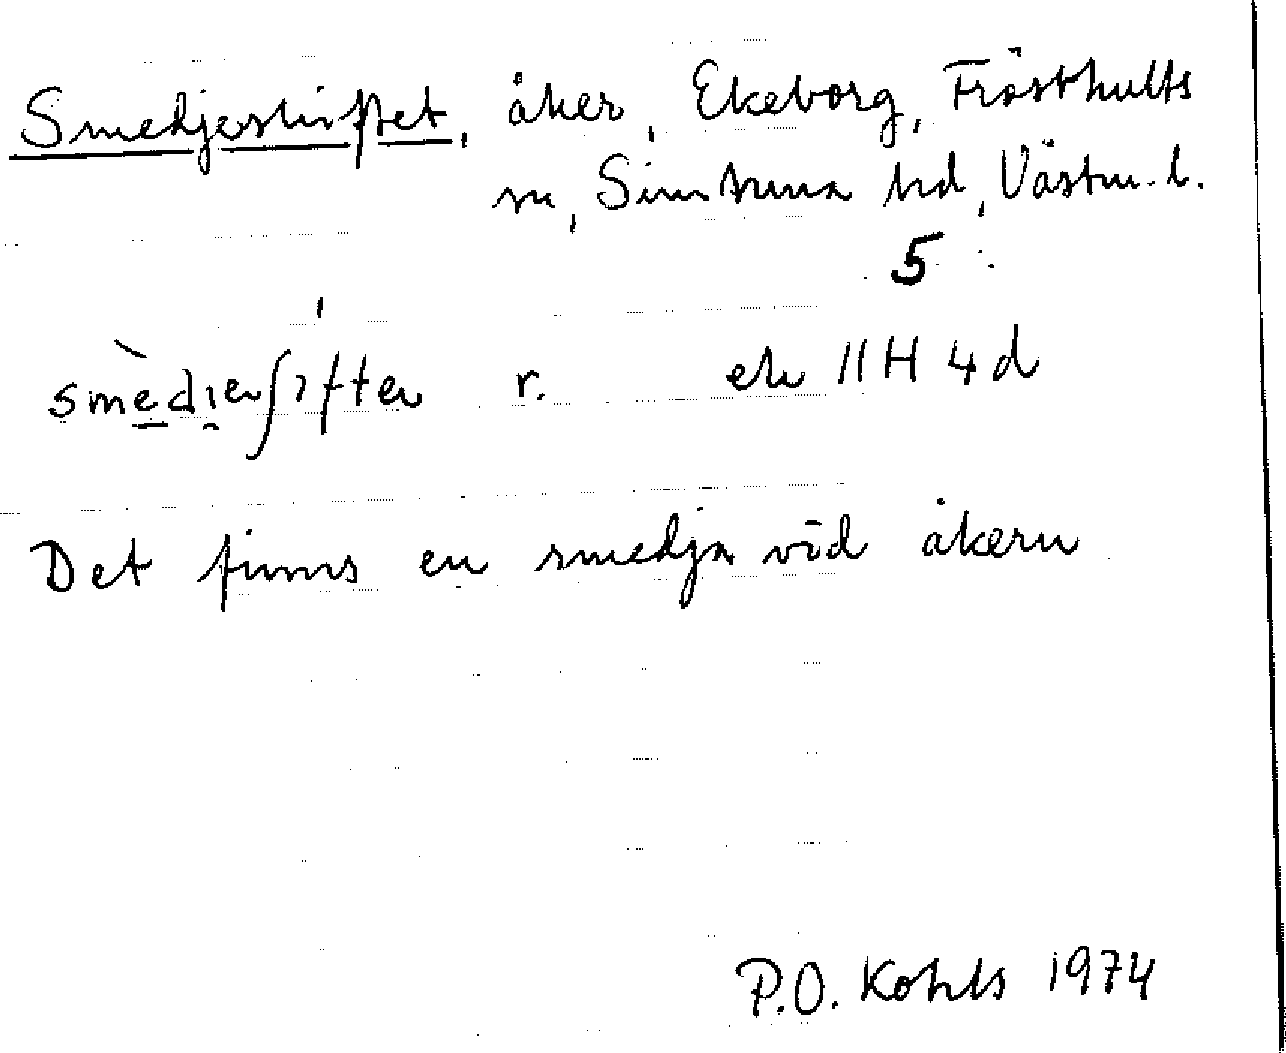 Smedjeskiftet, åker, Ekeborg, Frösthults
sn, Simtuna hd, Västm. l.
5
r. ek 11H 4d
Det finns en smedja vid åkern
P.O. Kohls 1974